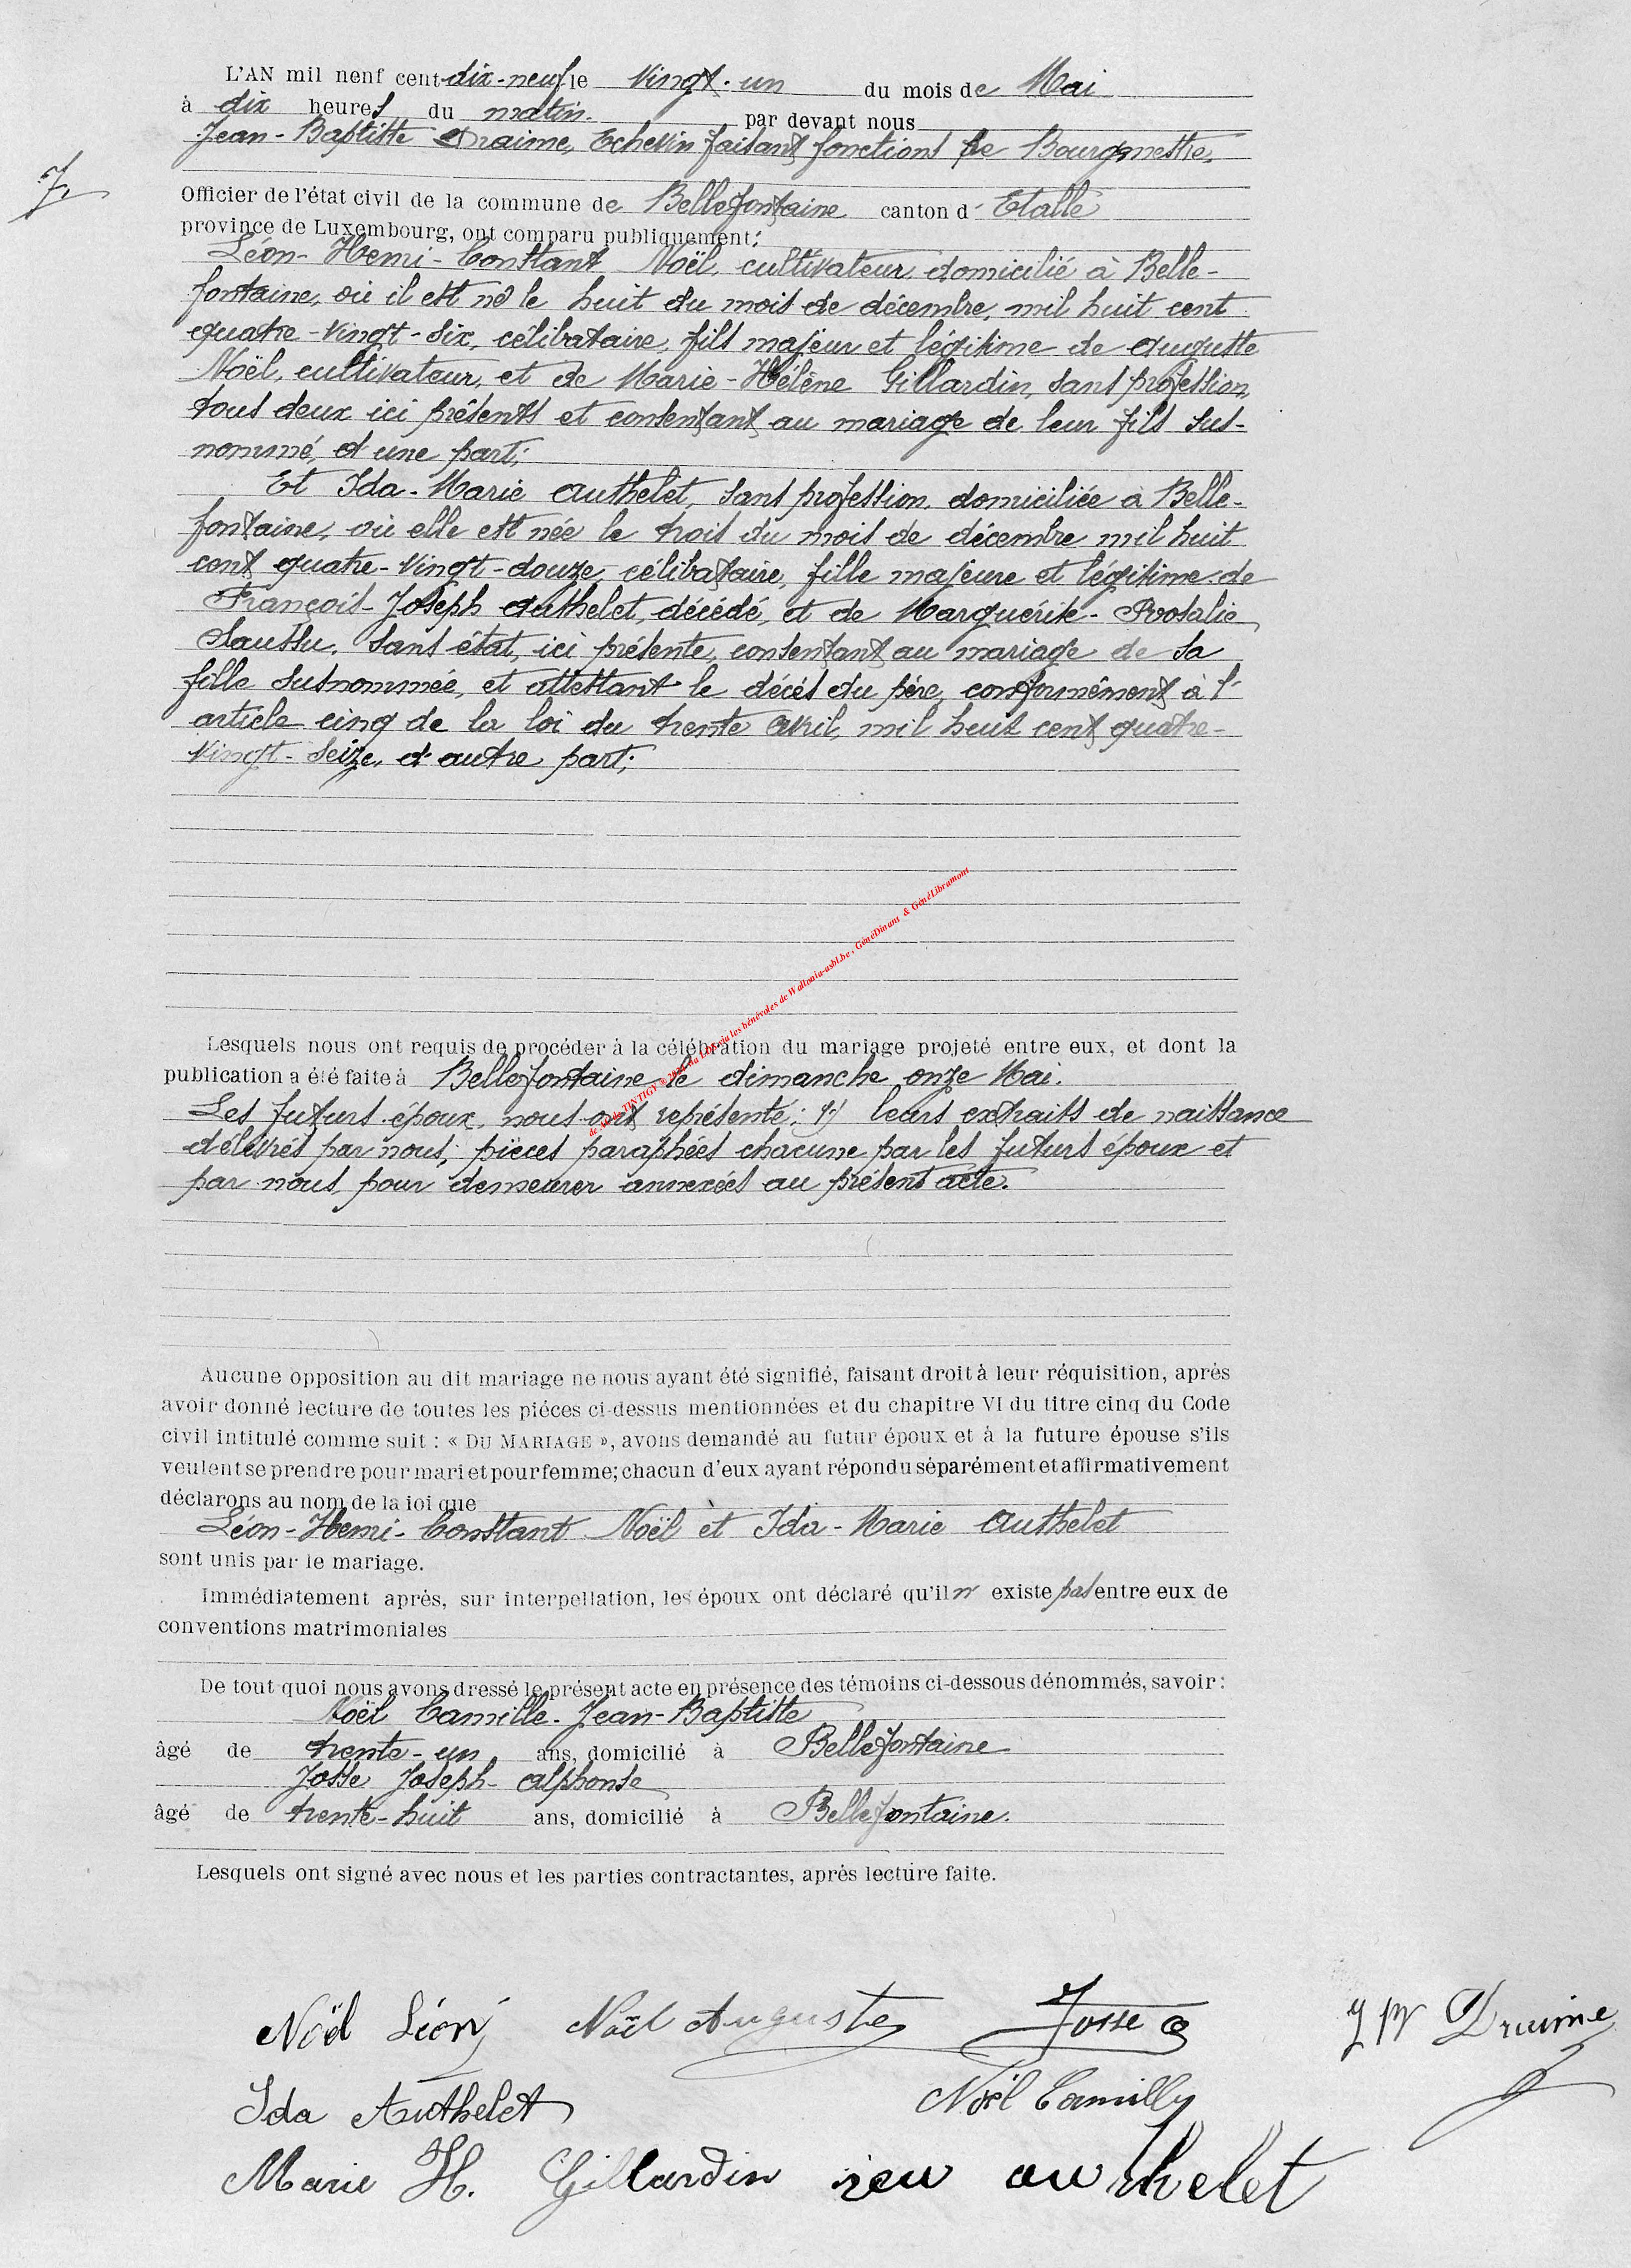 L'AN mil neuf cent dix-neuf le vingt-un du mois de Mai
à dix heures du matin. par devant nous
Jean-Baptiste Draime, Echevin faisant fonctions de Bourgmestre,
7.
Officier de l'état civil de la commune de Bellefontaine canton d' Etalle
province de Luxembourg, ont comparu publiquement:
Léon-Henri-Constant Noël, cultivateur domicilié à Belle-
fontaine, où il est né le huit du mois de décembre, mil huit cent
quatre-vingt-six, célibataire, fils majeur et légitime de Auguste
Noël, cultivateur, et de Marie-Hélène Gillardin, sans profession,
tous deux ici présents et consentant au mariage de leur fils sus-
nommé, d'une part;
Et Ida-Marie Authelet, sans profession, domiciliée à Belle-
fontaine, où elle est née le trois du mois de décembre mil huit
cent quatre-vingt-douze, célibataire, fille majeure et légitime de
François-Joseph Authelet, décédé, et de Marguérite-Rosalie
sans état, ici présente, consentant au mariage de sa
fille susnommée, et attestant le décès du père, conformément à l'
article cinq de la loi du trente avril, mil huit cent quatre-
vingt-seize, d'autre part;
Lesquels nous ont requis de procéder à la célébration du mariage projeté entre eux, et dont la
publication a été faite à Bellefontaine le dimanche onze Mai.
Les futurs époux, nous ont représenté: 1°) leurs extraits de naissance
délivrés par nous; pièces paraphées chacune par les futurs époux et
par nous pour demeurer annexées au présent acte.
de TINTIGY via les bénévoles de Wallonia-asbl.be, GénéDinant & GénéLibramont
Aucune opposition au dit mariage ne nous ayant été signifié, faisant droit à leur réquisition, après
avoir donné lecture de toutes les piéces ci-dessus mentionnées et du chapitre VI du titre cinq du Code
civil intitulé comme suit : « DU MARIAGE », avons demandé au futur époux et à la future épouse s'ils
veulent se prendre pour mari et pour femme; chacun d'eux ayant répondu séparément et affirmativement
déclarons au nom de la loi que
Léon-Henri-Constant Noël et Ida-Marie Authelet
sont unis par le mariage.
Immédiatement après, sur interpellation, les époux ont déclaré qu'il n' existe pas entre eux de
conventions matrimoniales
De tout quoi nous avons dressé le présent acte en présence des témoins ci-dessous dénommés, savoir:
Noël Camille-Jean-Baptiste
âgé de trente-un ans, domicilié à Bellefontaine
Josse Joseph-Alphonse
âgé de trente-huit ans, domicilié à Bellefontaine.
Lesquels ont signé avec nous et les parties contractantes, après lecture faite.
Noël Léon Noël Auguste Josse J B Draime
Ida Authelet Noël Camille
Marie H. Gillardin authelet